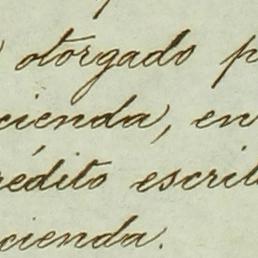 otorgado p
cienda, en
rédito escrit
cienda.